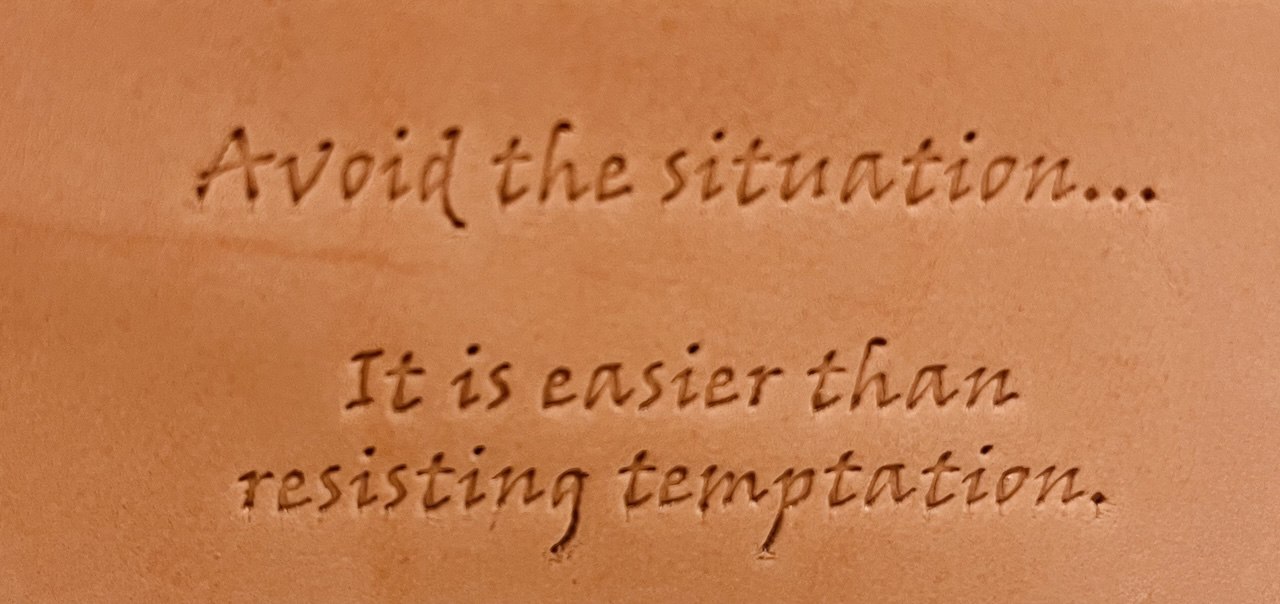 Avoid the situation...
It is easier than
resisting temptation.